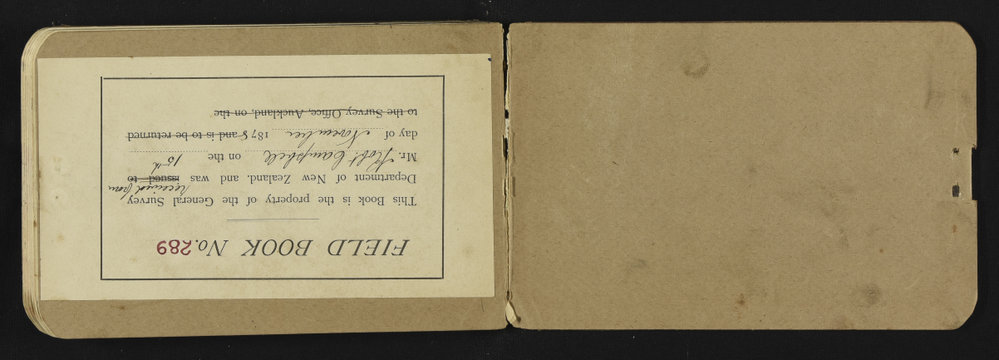 FIELD BOOK No. 289
This Book is the property of the General Survey
received from
Department of New Zealand, and was issued to
Mr. Robt Campbell on the 15th
day of November 1878 and is to be returned
to the Survey Office, Auckland, on the